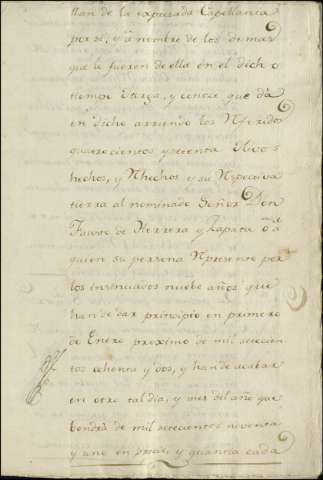 llan de la expresada Capellania
por si, y â nombre de los demas
que lo fueren de ella en el dicho
tiempo otorga, y conoce que dà
en dicho arriendo los Referidos
quatrocientos y setenta Olivos
hechos, y Rhechos y su Respectiva
tierra al nominado Señor Don
Fausto de Herrera y Zapata ô â
quien su persona Represente por
los insinuados nuebe años que
han de dar principio en primero
de Enero proximo de mil setecien
tos ochenta y dos, y han de acabar
en otro tal dia, y mes del año que
bendrà de mil setecientos noventa
y uno en precio, y quantia cada